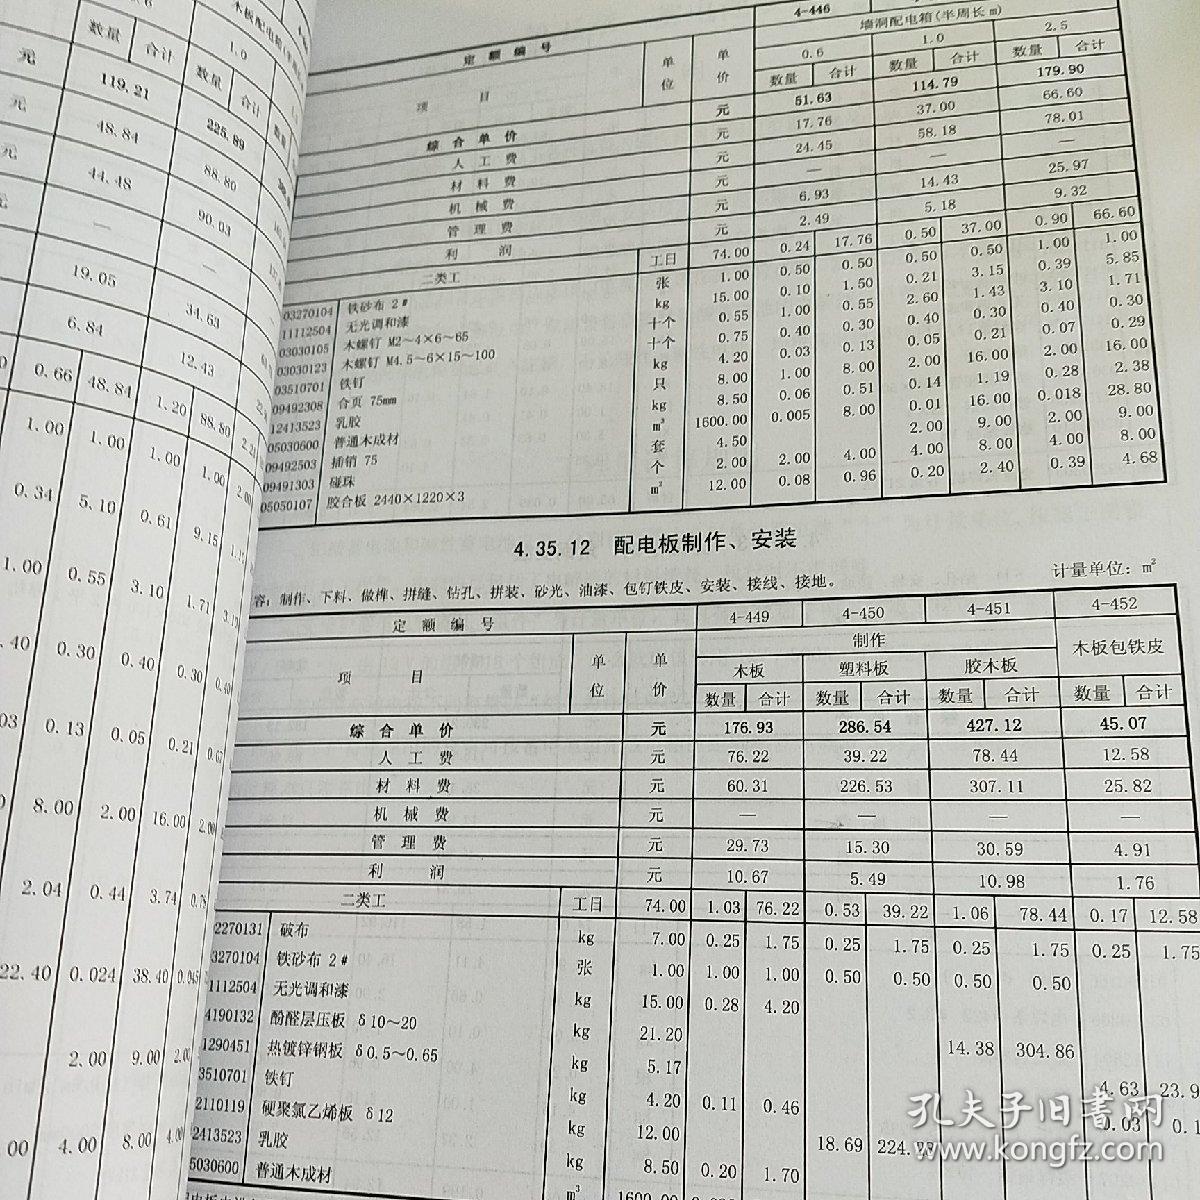 木板配电箱(半周长
数量 合计 数量 合计
1.0
元 119.21 225.89
元 48.84 88.80
元 44.48 90.03
— —
19.05 34.63
6.84 12.43
0.66 48.84 1.20 88.80
1.00 1.00 1.00 1.00 2.00
0.34 5.10 0.61 9.15
1.00 0.55 3.10 1.71
.40 0.30 0.40 0.30
0.13 0.05 0.21
8.00 2.00 16.00 2.00
2.04 0.44 3.74
22.40 0.024 38.40
2.00 9.00
4.00 8.00
定额编号 4-446
项目 单位 单价 墙洞配电箱(半周长m)
0.6 1.0 2.5
数量 合计 数量 合计 数量 合计
综合单价 元 51.63 114.79 179.90
人工费 元 17.76 37.00 66.60
材料费 元 24.45 58.18 78.01
机械费 元 — — —
管理费 元 6.93 14.43 25.97
利润 元 2.49 5.18 9.32
二类工 工日 74.00 0.24 17.76 0.50 37.00 0.90 66.60
03270104 铁砂布 2# 张 1.00 0.50 0.50 0.50 0.50 1.00 1.00
11112504 无光调和漆 kg 15.00 0.10 1.50 0.21 3.15 0.39 5.85
03030105 木螺钉 M2～4×6～65 十个 0.55 1.00 0.55 2.60 1.43 3.10 1.71
03030123 木螺钉 M4.5～6×15～100 十个 0.75 0.40 0.30 0.40 0.30 0.40 0.30
03510701 铁钉 kg 4.20 0.03 0.13 0.05 0.21 0.07 0.29
09492308 合页 75mm 只 8.00 1.00 8.00 2.00 16.00 2.00 16.00
12413523 乳胶 kg 8.50 0.06 0.51 0.14 1.19 0.28 2.38
05030600 普通木成材 m³ 1600.00 0.005 8.00 0.01 16.00 0.018 28.80
09492503 插销 75 套 4.50 2.00 9.00 2.00 9.00
09491303 碰珠 个 2.00 2.00 4.00 4.00 8.00 4.00 8.00
05050107 胶合板 2440×1220×3 m² 12.00 0.08 0.96 0.20 2.40 0.39 4.68
4.35.12 配电板制作、安装
容：制作、下料、做榫、拼缝、钻孔、拼装、砂光、油漆、包钉铁皮、安装、接线、接地。 计量单位：m²
定额编号 4-449 4-450 4-451 4-452
项目 单位 单价 制作 木板包铁皮
木板 塑料板 胶木板
数量 合计 数量 合计 数量 合计 数量 合计
综合单价 元 176.93 286.54 427.12 45.07
人工费 元 76.22 39.22 78.44 12.58
材料费 元 60.31 226.53 307.11 25.82
机械费 元 — — — —
管理费 元 29.73 15.30 30.59 4.91
利润 元 10.67 5.49 10.98 1.76
二类工 工日 74.00 1.03 76.22 0.53 39.22 1.06 78.44 0.17 12.58
2270131 破布 kg 7.00 0.25 1.75 0.25 1.75 0.25 1.75 0.25 1.75
3270104 铁砂布 2# 张 1.00 1.00 1.00 0.50 0.50 0.50 0.50
1112504 无光调和漆 kg 15.00 0.28 4.20
4190132 酚醛层压板 δ10～20 kg 21.20 14.38 304.86
1290451 热镀锌钢板 δ0.5～0.65 kg 5.17 4.63 23.9
3510701 铁钉 kg 4.20 0.11 0.46 0.03 0.1
2110119 硬聚氯乙烯板 δ12 kg 12.00 18.69 224.28
2413523 乳胶 kg 8.50 0.20 1.70
5030600 普通木成材 m³ 1600.00
孔夫子旧书网
www.kongfz.com